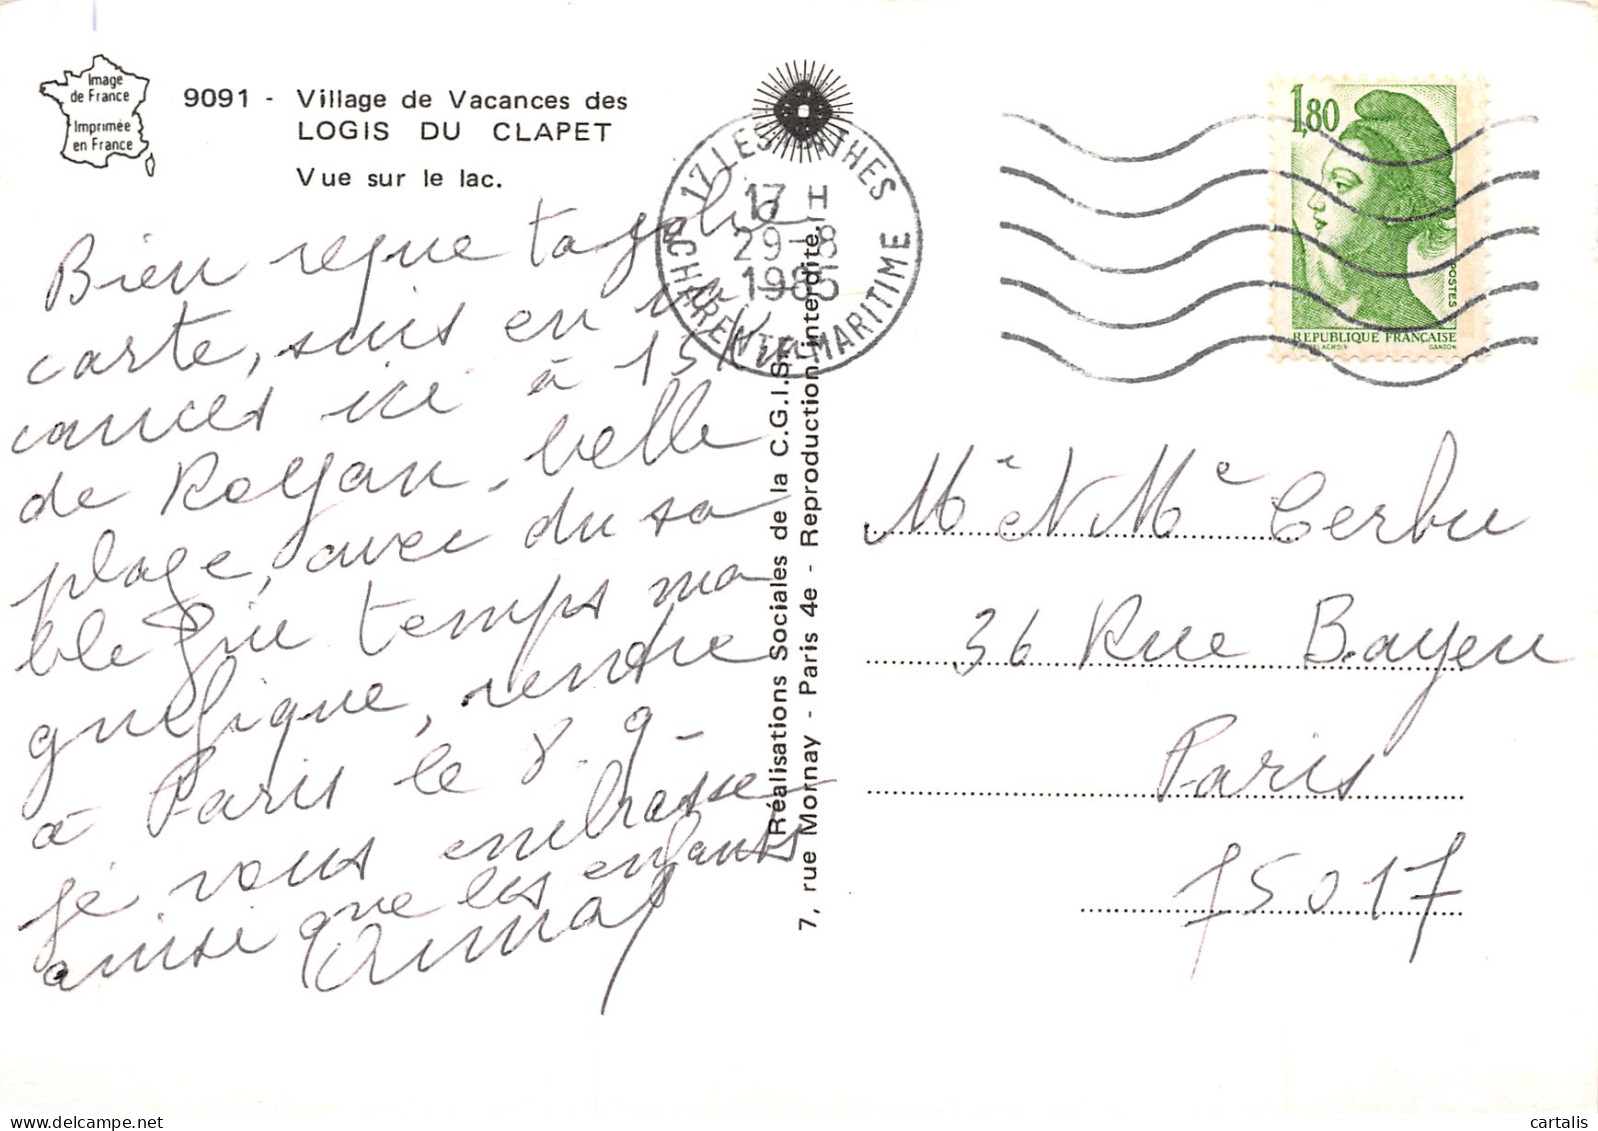 Image
de France
Imprimée
en France
9091 - Village de Vacances des
LOGIS DU CLAPET
Vue sur le lac.
Bien reçue ta jolie
carte, suis en va
cances ici à 15 K
de Royan, belle
plage, avec du sa
ble fin temps ma
gnifique, rentre
à Paris le 8. 9-
je vous embrasse
ainsi que les enfants
17 LES MATHES
17 H
29-8
1985
CHARENTE-MARITIME
Réalisations Sociales de la C.G.I.S.
7, rue Mornay - Paris 4e - Reproduction interdite.
1,80
POSTES
REPUBLIQUE FRANÇAISE
DELACROIX GANDON
Mr et Me Cerbu
36 Rue Bayen
Paris
75017
cartalis